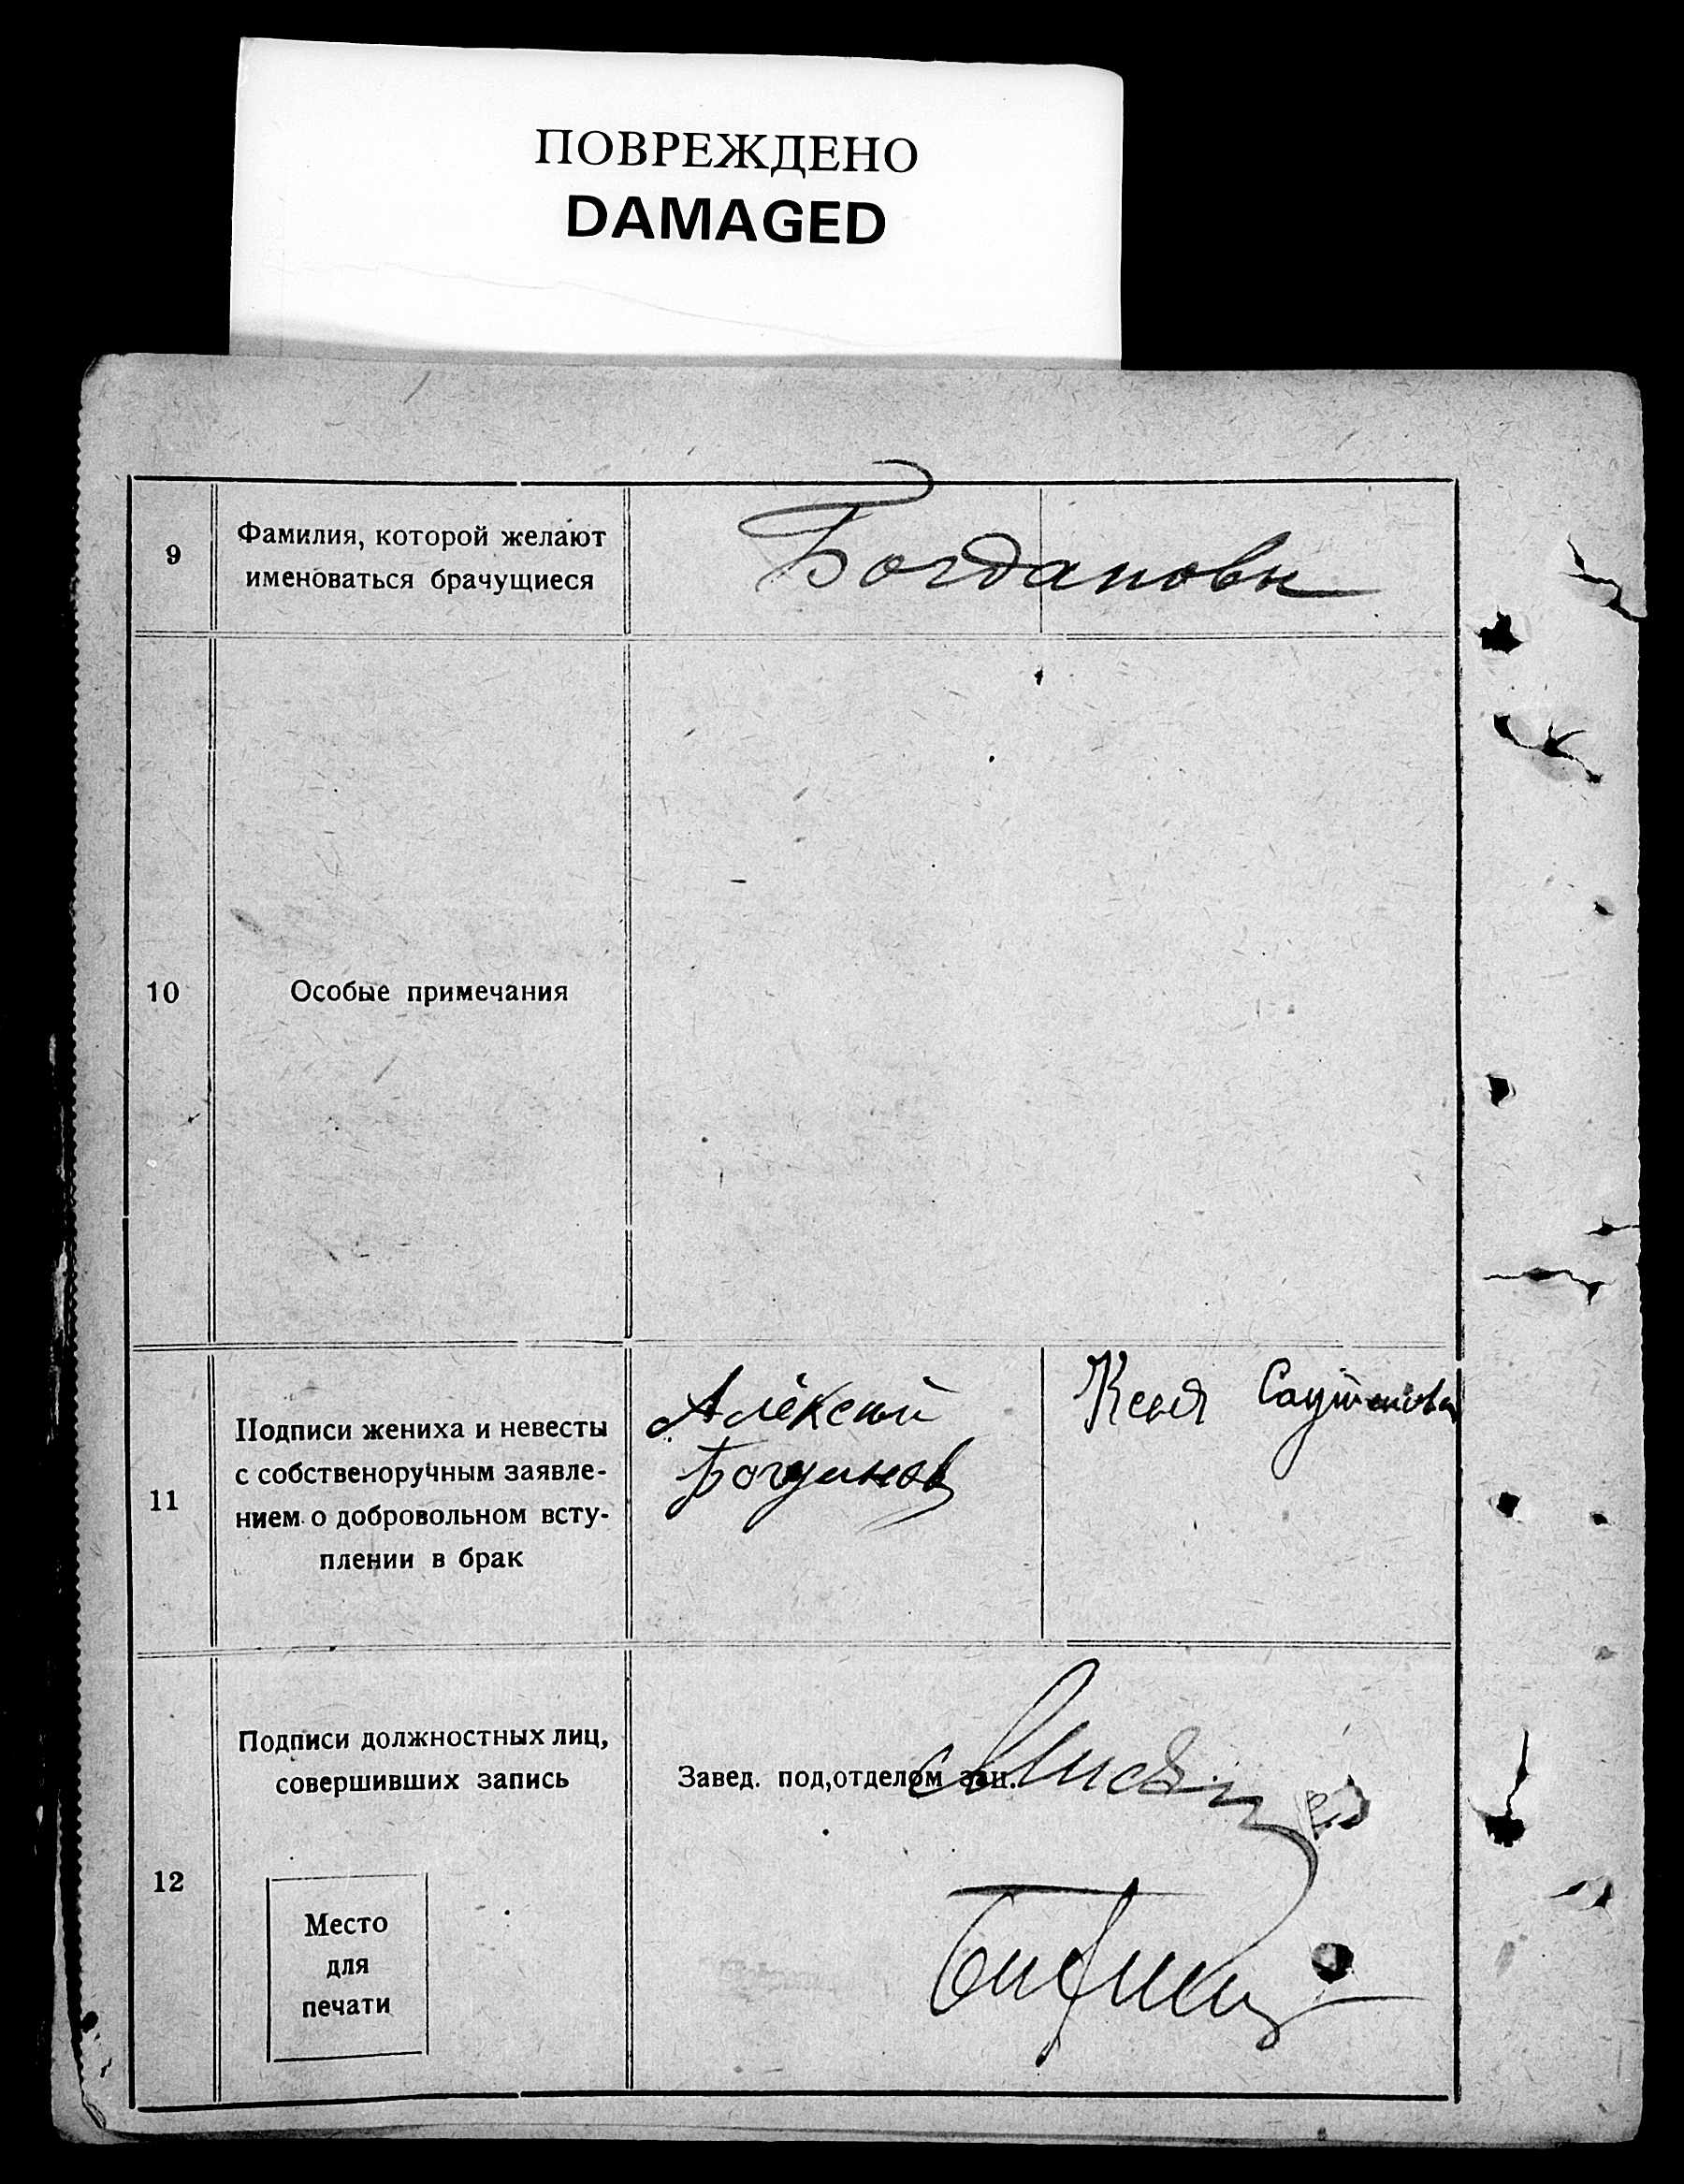 ПОВРЕЖДЕНО
DAMAGED
9
Фамилия, которой желают
именоваться брачущиеся
Богдановы
10
Особые примечания
11
Подписи жениха и невесты
с собственоручным заявле-
нием о добровольном всту-
плении в брак
Алексей
Богданов
12
Подписи должностных лиц,
совершивших запись
Завед. под,отделом
Место
для
печати